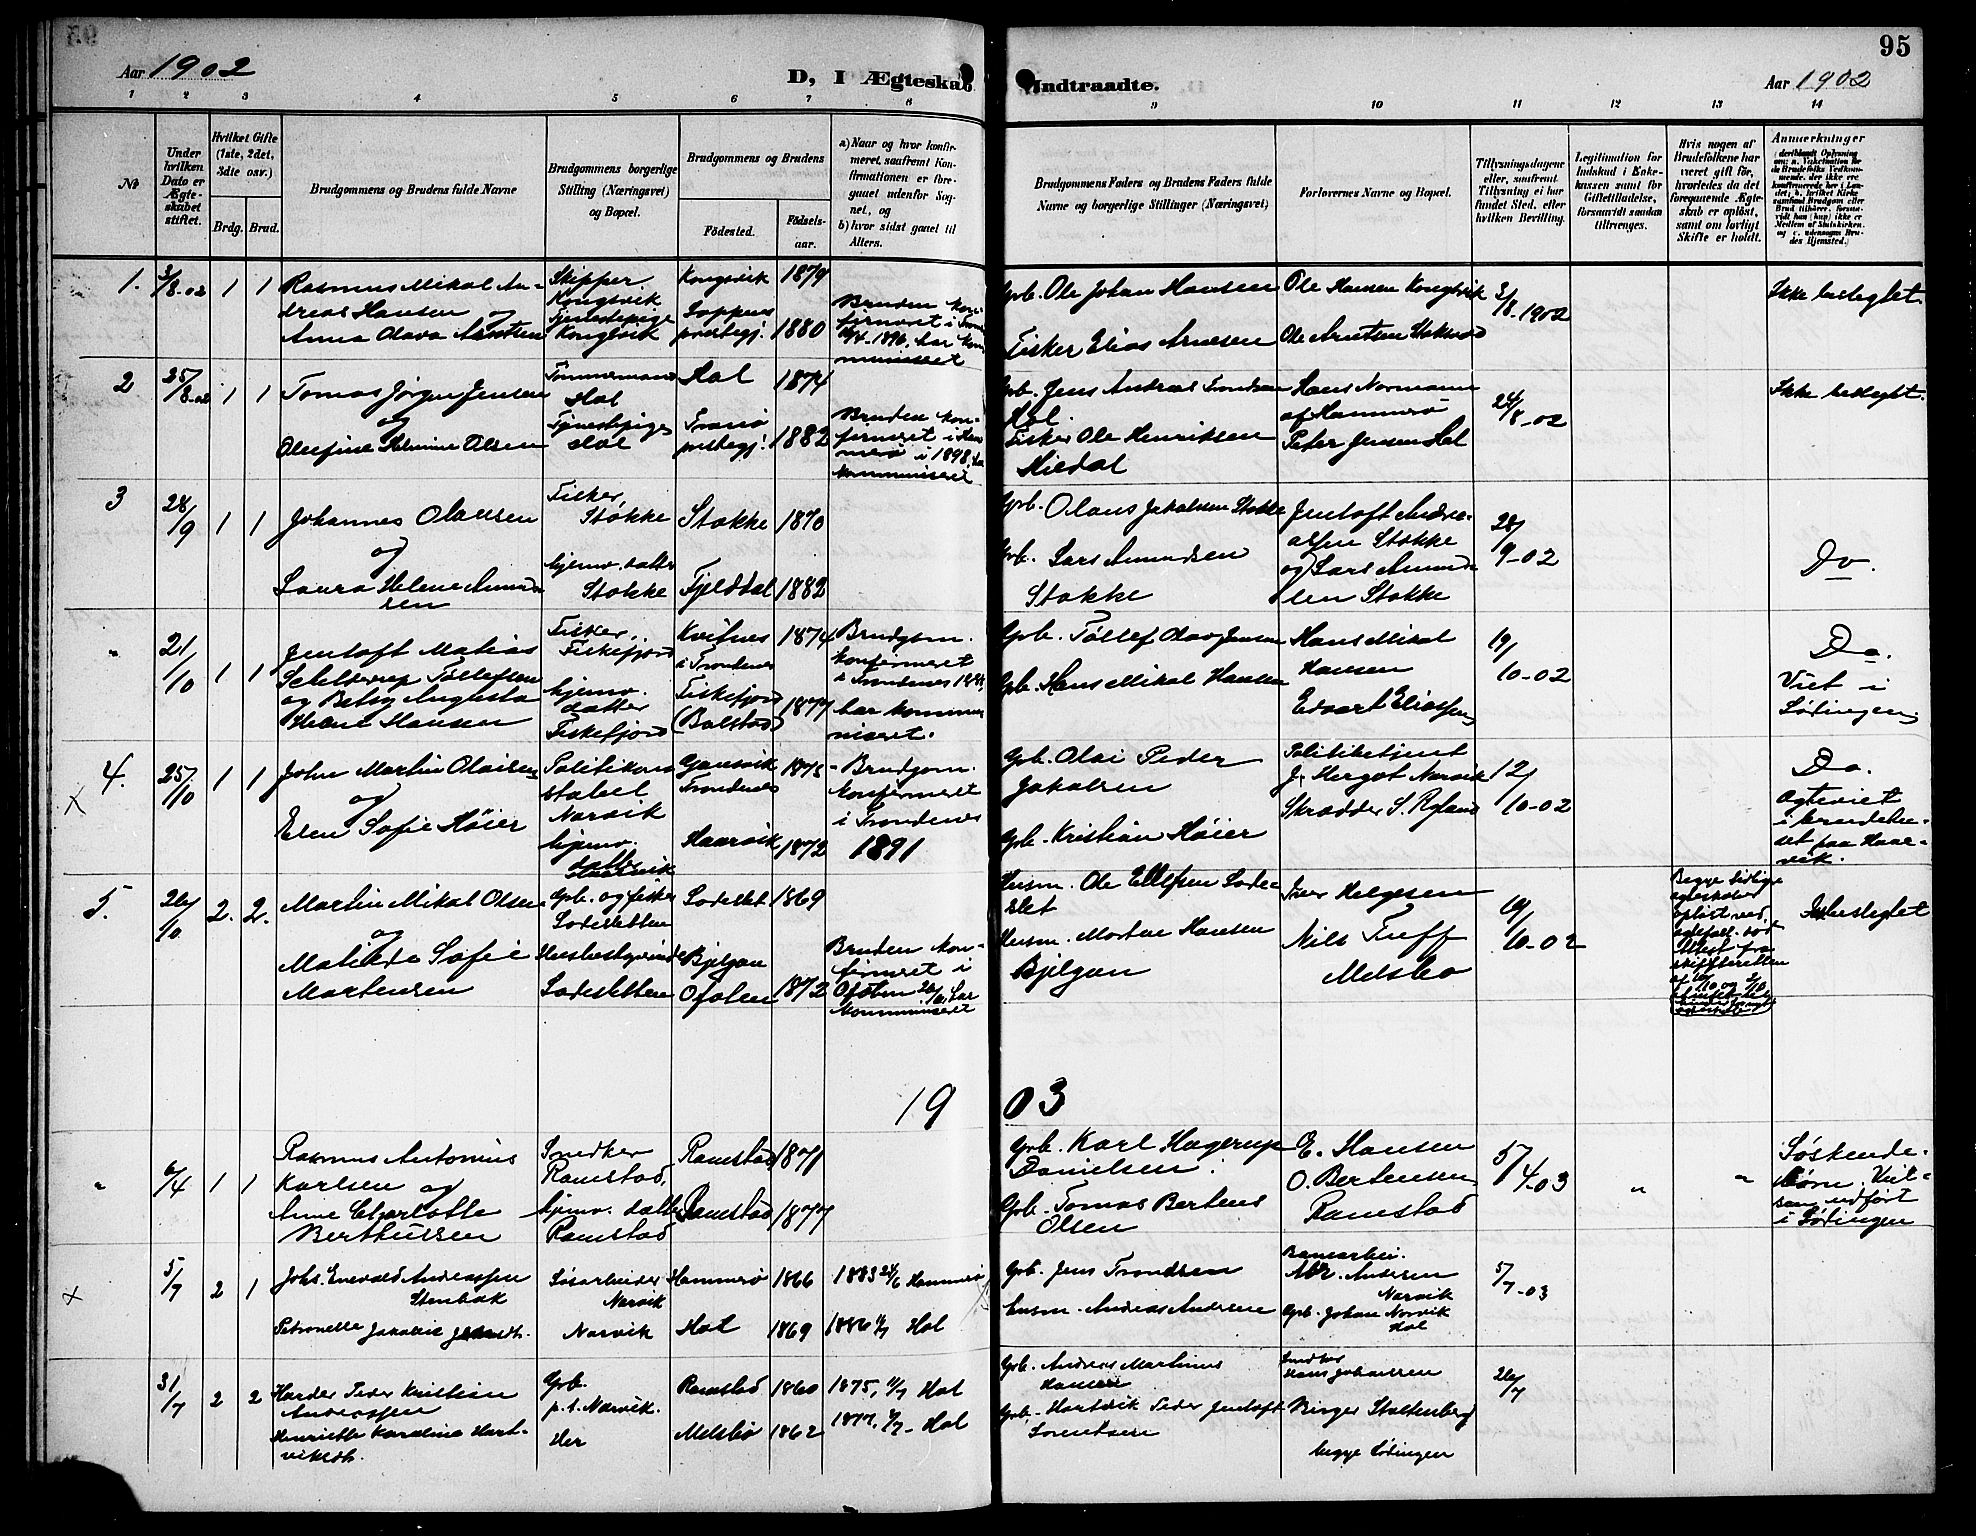 95
Aar 1902
D, I Ægteskab Indtraadte.
Aar 1902
1 2 3 4 5 6 7 8 9 10 11 12 13 14
No
Under hvilken Dato er Ægteskabet stiftet.
Hvilket Gifte (1ste, 2det, 3die osv.)
Brdg. Brud.
Brudgommens og Brudens fulde Navne
Brudgommens borgerlige Stilling (Næringsvei) og Bopæl.
Brudgommens og Brudens
Fødested.
Fødselsaar.
a) Naar og hvor konfirmeret, saafremt Konfirmationen er foregaaet udenfor Sognet, og
b) hvor sidst gaaet til Alters.
Brudgommens Faders og Brudens Faders fulde Navne og borgerlige Stillinger (Næringsvei)
Forlovernes Navne og Bopæl.
Tillysningsdagene eller, saafremt Tillysning ei har fundet Sted, efter hvilken Bevilling.
Legitimation for Indskud i Enkekassen samt for Giftetilladelse, forsaavidt saadan tiltrænges.
Hvis nogen af Brudefolkene har været gift før, hvorledes da det foregaaende Ægteskab er opløst, samt om lovligt Skifte er holdt.
Anmerkninger
1. 3/8-02 1 1
Rasmus Mikal Andreas Hansen
og
Anna Olava Arntsen
Skipper
Kongsvik
Tjenestepige
Kongsvik
Kongsvik 1879
Loppens præstegj. 1880
Bruden konfirmeret i
1896, har kommuniseret
Gbr. Ole Johan Hansen
Fisker Elias Arnesen
Ole Hansen Kongsvik
Ole Arntsen
3/8-1902
Ikke beslegtet
2 25/8-02 1 1
Tomas Jørgen Jensen
og
Olefine Olsen
Tømmermand
Hol
Tjenestepige
Hol
Hol 1874
Tranø præstegj. 1882
Bruden konfirmeret i Hammerø i 1898, har kommuniseret
Gbr. Jens Andreas Trondsen
Hol
Fisker Ole Henriksen
Hans Normann
af Hammerø
Peter Jensen Hol
24/8-02
Ikke beslegtet.
3 28/9 1 1
Johannes Olausen
og
Laura Helene Amundsen
Fisker,
Stokke
hjemv. datter
Stokke
Stokke 1870
Fjelddal 1882
Gbr. Olaus Jakobsen Stokke
Gbr. Lars Amundsen
Stokke
Jentoft Andreassen Stokke
og Lars Amundsen Stokke
28/9-02
Do.
" 21/10 1 1
Jentoft Matias
Schelderup Tollefsen
og Betsy Augusta
Hansen
Fisker,
Fiskefjord
hjemv. datter
Fiskefjord
Kvitnes i Trondenes 1874
Fiskefjord (Balstad) 1877
Brudgom. konfirmeret i Trondenes
har kommuniseret.
Gbr. Tollef Olav Jensen
Gbr. Hans Mikal Hansen
Hans Mikal
Hansen
Edvart Eliassen
19/10-02
Do.
Viet i
Lødingen
4. 25/10 1 1
John Martin Olaisen
og
Elen Sofie Høier
Politikonstabel
Narvik
hjemv. datter
Haarvik
Gausvik
Trondenes 1875
Haarvik 1872
Brudgom.
konfirmeret
i Trondenes
1891
Gbr. Olai Peder
Jakobsen
Gbr. Kristian Høier
Politibetjent
J. Hergot Narvik
Skrædder S. Ryland
12/10-02
Do.
Egteviet
i brudehuset paa Haarvik.
5. 26/10 2. 2.
Martin Mikal Olsen
og
Matilda Sofie
Martensen
Gbr. og fisker
Husbestyrerinde
Bjelgan
Ofoten
1869
1872
Bruden konfirmeret i
Ofoten
kommuniseret
Husm. Ole Ellefsen
Husm. Morten Hansen
Bjelgan
Iver Helgesen
Nils Tueff
Melsbø
19/10-02
beslegtet
1903
" 6/4 1 1
Rasmus Antonius
Karlsen og
Anne Charlotte
Berthussen
Snedker
Ramstad,
hjemv. datter
Ramstad
Ramstad 1871
Ramstad 1877
Gbr. Karl Hagerup
Danielsen
Gbr. Tomas Bertens
Olsen
E. Hansen
O. Bertensen
Ramstad
5/4-03
"
"
Søskendebørn. Vielsen udført
i Lødingen
5/7 2 1
Johs. Enevold Andreassen
Stenbak
Petronelle Jakobie
Løsarbeider
Narvik
Narvik
Hammerø 1866
Hol 1869
1883 24/6 Hammerø
1886 4/7 Hol
Gbr. Jens Trondsen
Husm. Andreas Andersen
Banearbei.
Andersen
Narvik
Gbr. Johan Norvik
Hol
5/7-03
31/7 2 2
Harder Peder Kristian
Andreassen
Henriette Karoline Hartviksdt.
Gbr.
p.t. Narvik.
Ramstad 1860
Melsbø 1862
1875, 11/7 Hol
1877, Hol
Gbr. Andreas Martinus
Hansen
Gbr. Hartvik Peder Jentoft
Lorentsen
Snedker
Hans Johansen
Birger Stoltenberg
begge Lødingen
26/7